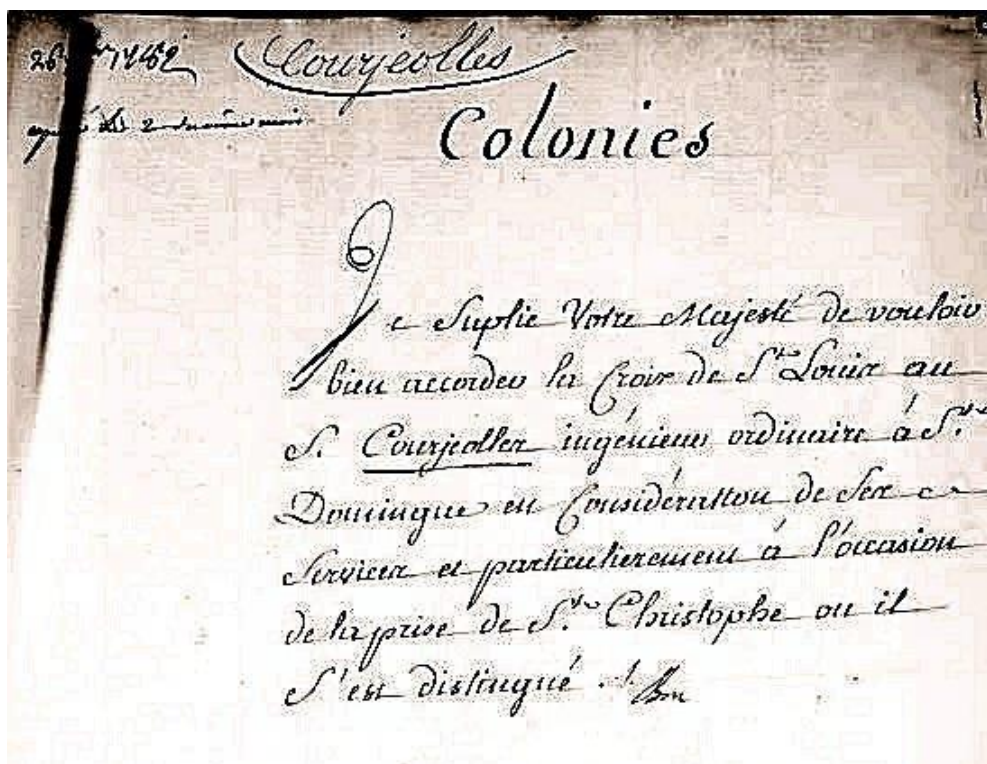 Courjeolles
du 2 du même mois
Colonies
Je Suplie Votre Majesté de vouloir
bien accorder la Croix de St. Louis au
S. Courjolles ingénieur ordinaire à St.
Domingue en Considération de Ses
Services et particulierement à l'occasion
de la prise de St. Christophe ou il
S'est distingué ./. Bon